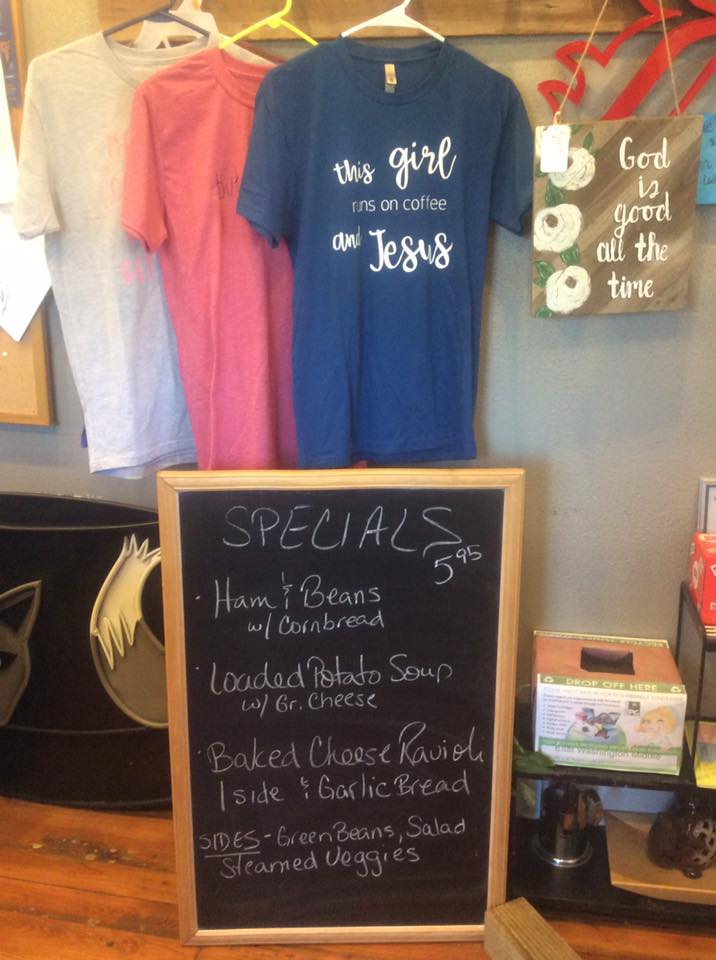 this girl
runs on coffee
and Jesus
God
is
good
all the
time
SPECIALS
5.95
· Ham & Beans
w/ Cornbread
· Loaded Potato Soup
w/ Gr. Cheese
· Baked Cheese Ravioli
1 side & Garlic Bread
SIDES - Green Beans, Salad
Steamed Veggies
DROP OFF HERE
East Washington Middle